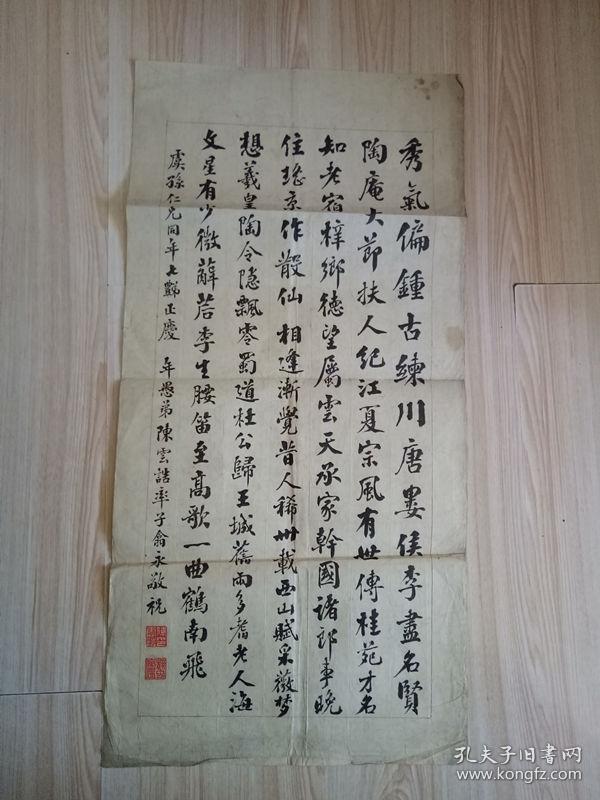 秀氣偏鍾古練川唐婁侯李盡名賢
陶庵大節扶人紀江夏宗風有世傳桂苑才名
知老宿梓鄉德望屬雲天承家幹國諸郎事晚
住瑤京作散仙 相逢漸覺昔人稀卅載西山賦采薇梦
想羲皇陶令隐飄零蜀道杜公歸王城舊雨多耆老人海
文星有少微薜荔李生腰笛至高歌一曲鶴南飛
虞孫仁兄同年七豑正慶 年愚弟陳雲誥率子翕永敬祝
孔夫子旧书网
www.kongfz.com